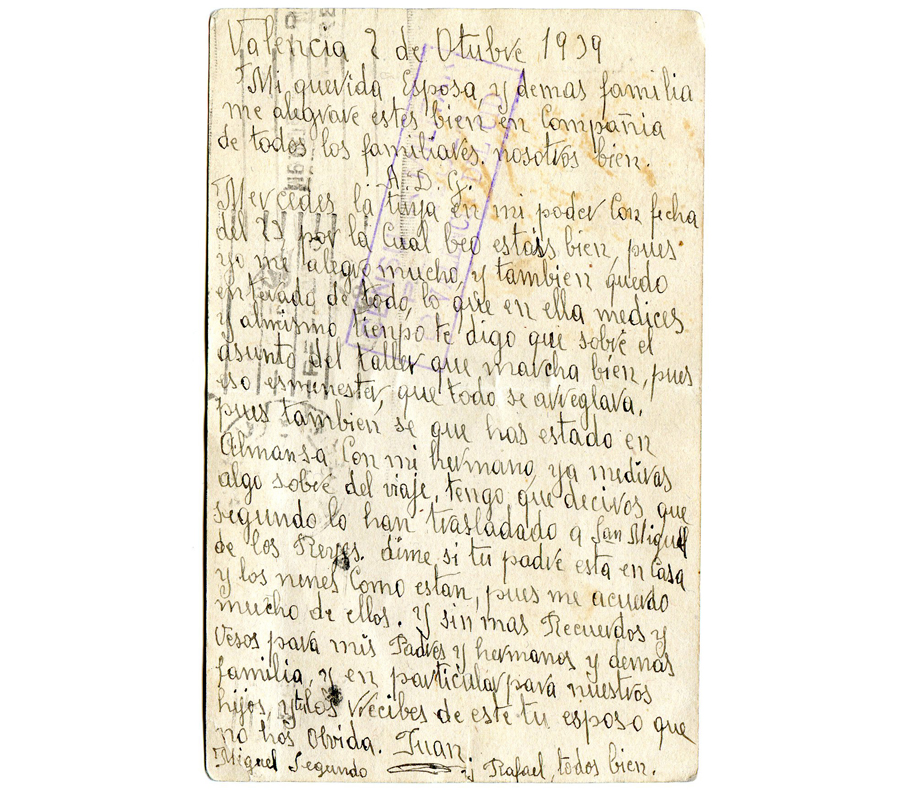 Valencia 2 de Otubre 1939
Mi querida Esposa y demas familia
me alegrare estes bien en Compañia
de todos los familiares. nosotros bien.
A. D. G.
Mercedes la tuya en mi poder Con fecha
del 23 por la Cual beo estás bien, pues
yo me alegro mucho, y tambien quedo
enterado de todo, lo que en ella medices
y almismo tienpo te digo que sobre el
asunto del taller que marcha bien, pues
eso esmenester, que todo se arreglara,
pues tambien se que has estado en
Almansa Con mi hermano, ya mediras
algo sobre del viaje, tengo que deciros que
segundo lo han trasladado a San Miguel
de los Reyes. dime si tu padre esta en Casa
y los nenes Como estan, pues me acuerdo
mucho de ellos. Y sin mas Recuerdos y
Vesos para mis Padres y hermanos y demas
familia, y en particular para nuestros
hijos, y tu los Recibes de este tu esposo que
no hos Olvida. Juan
Miguel Segundo y Rafael, todos bien.
CENSURA